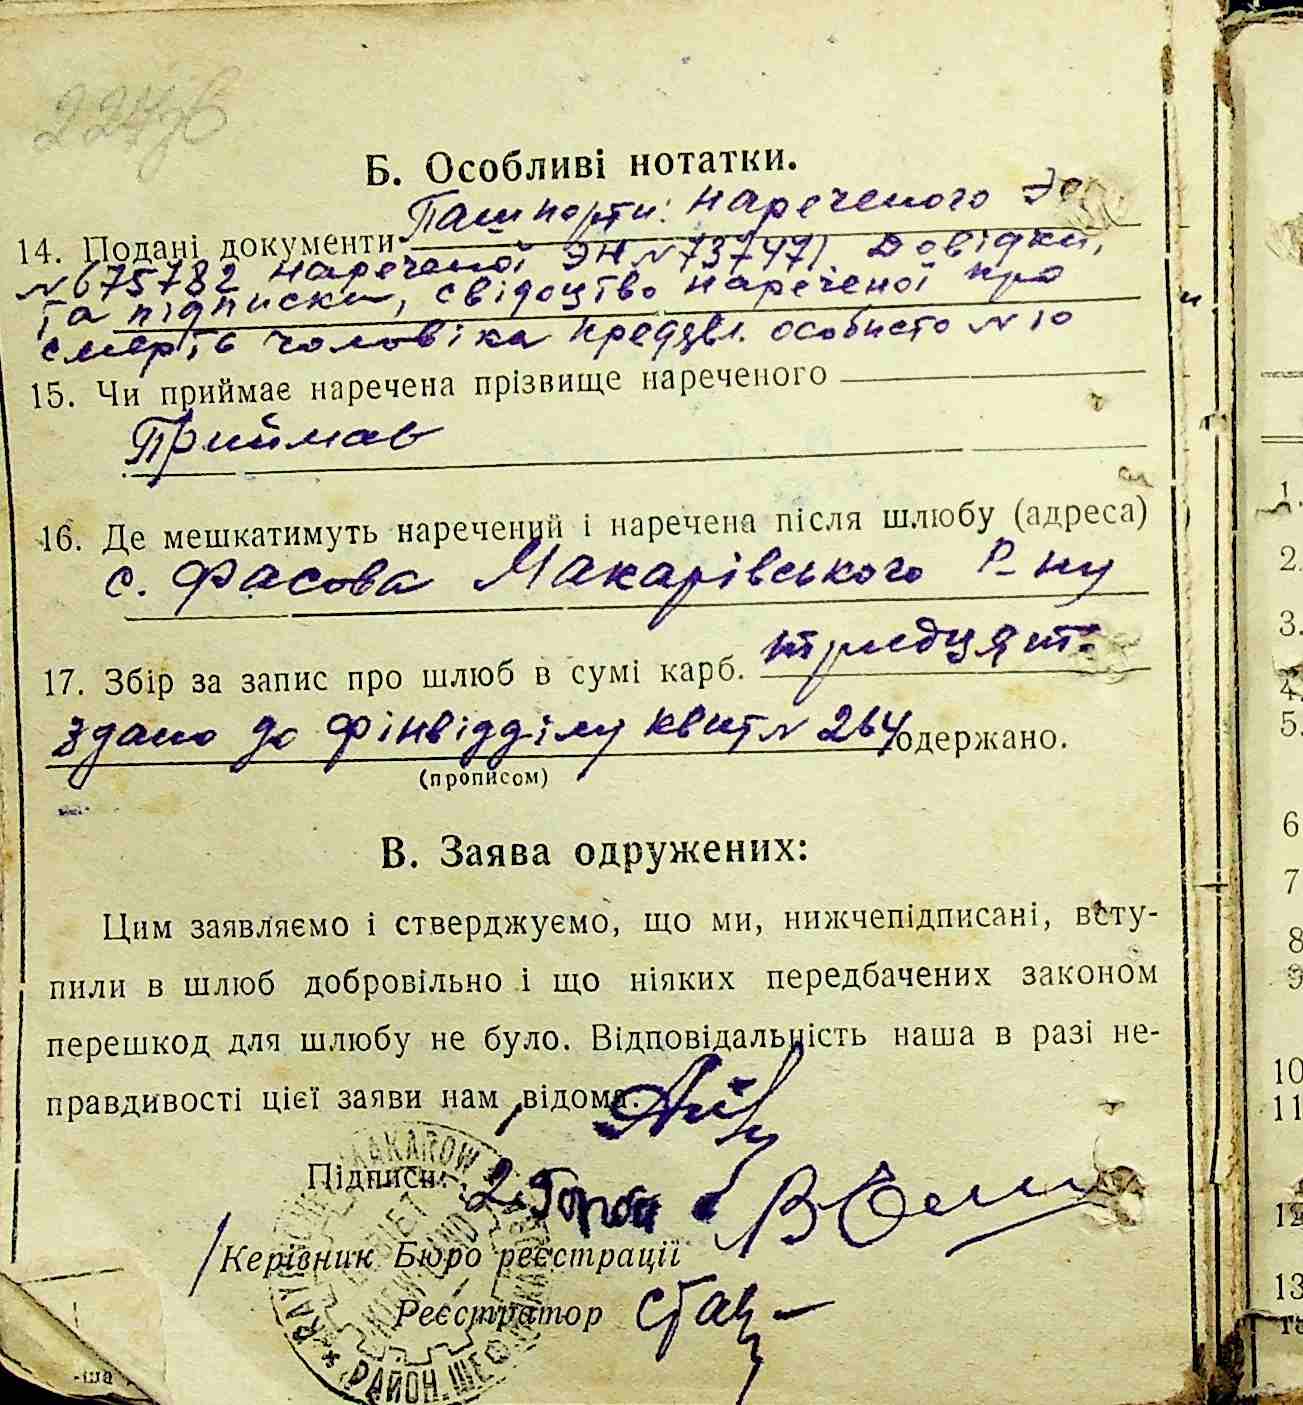 Б. Особливі нотатки.
14. Подані документи Пашпорти: нареченого
№ 675782 нареченої ЭН № 737471 Довідки,
та підписки, свідоцтво нареченої про
смерть чоловіка предявл. особисто № 10
15. Чи приймає наречена прізвище нареченого
Приймає
16. Де мешкатимуть наречений і наречена після шлюбу (адреса)
с. Фасова Макарівського Р-ну
17. Збір за запис про шлюб в сумі карб. тридцят.
здано до фінвідділу квит № 264 одержано.
(прописом)
В. Заява одружених:
Цим заявляємо і стверджуємо, що ми, нижчепідписані, всту-
пили в шлюб добровільно і що ніяких передбачених законом
перешкод для шлюбу не було. Відповідальність наша в разі не-
правдивості цієї заяви нам відома.
Підписи:
Керівник Бюро реєстрації
Реєстратор
MAKAROW
РАЙОН.
1.
2.
3.
4.
5.
6
7
8
9
10
11
12
13